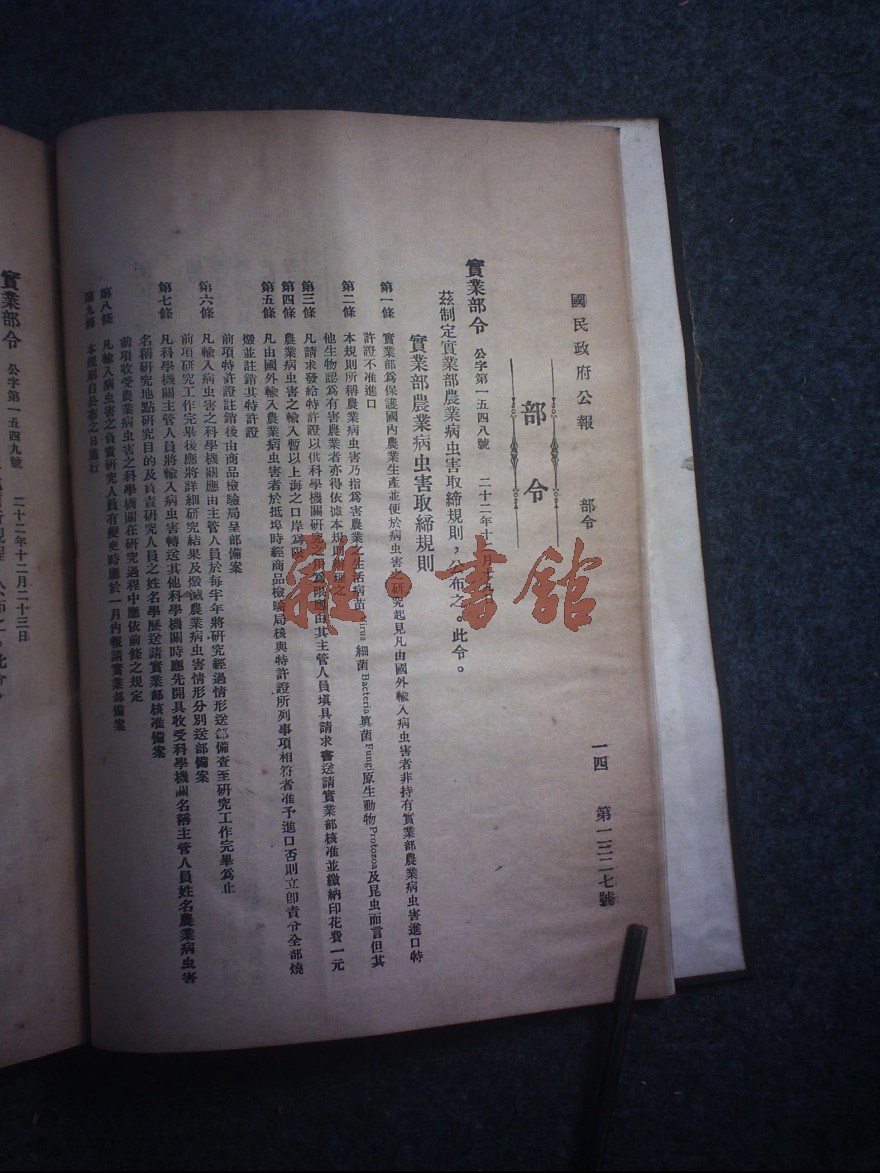 國民政府公報 部令 一四 第一三二七號
部令
實業部令 公字第一五四八號 二十二年十二月
茲制定實業部農業病虫害取締規則，公布之。此令。
實業部農業病虫害取締規則
第一條 實業部為保護國內農業生產並便於病虫害之研究起見凡由國外輸入病虫害者非持有實業部農業病虫害進口特
許證不准進口
第二條 本規則所稱農業病虫害乃指為害農業之生活病苗Virus細菌Bacteria真菌Fungi原生動物Protozoa及昆虫而言但其
他生物認為有害農業者亦得依據本規則
第三條 凡請求發給特許證以供科學機關研究之用為限應由其主管人員塡具請求書送請實業部核准並繳納印花費一元
第四條 農業病虫害之輸入暫以上海之口岸為限
第五條 凡由國外輸入農業病虫害者於抵埠時經商品檢驗局核與特許證所列事項相符者准予進口否則立卽責令全部燒
燬並註銷其特許證
前項特許證註銷後由商品檢驗局呈部備案
第六條 凡輸入病虫害之科學機關應由主管人員於每半年將研究經過情形送部備查至研究工作完畢為止
前項研究工作完畢後應將詳細研究結果及燬滅農業病虫害情形分別送部備案
第七條 凡科學機關主管人員將輸入病虫害轉送其他科學機關時應先開具收受科學機關名稱主管人員姓名農業病虫害
名稱研究地點研究目的及負責研究人員之姓名學歷送請實業部核准備案
前項收受農業病虫害之科學機關在研究過程中應依前條之規定
第八條 凡輸入病虫害之負責研究人員有變更時應於一月內報請實業部備案
第九條 本規則自公布之日施行
實業部令 公字第一五四九號 二十二年十二月二十三日
雜·書館